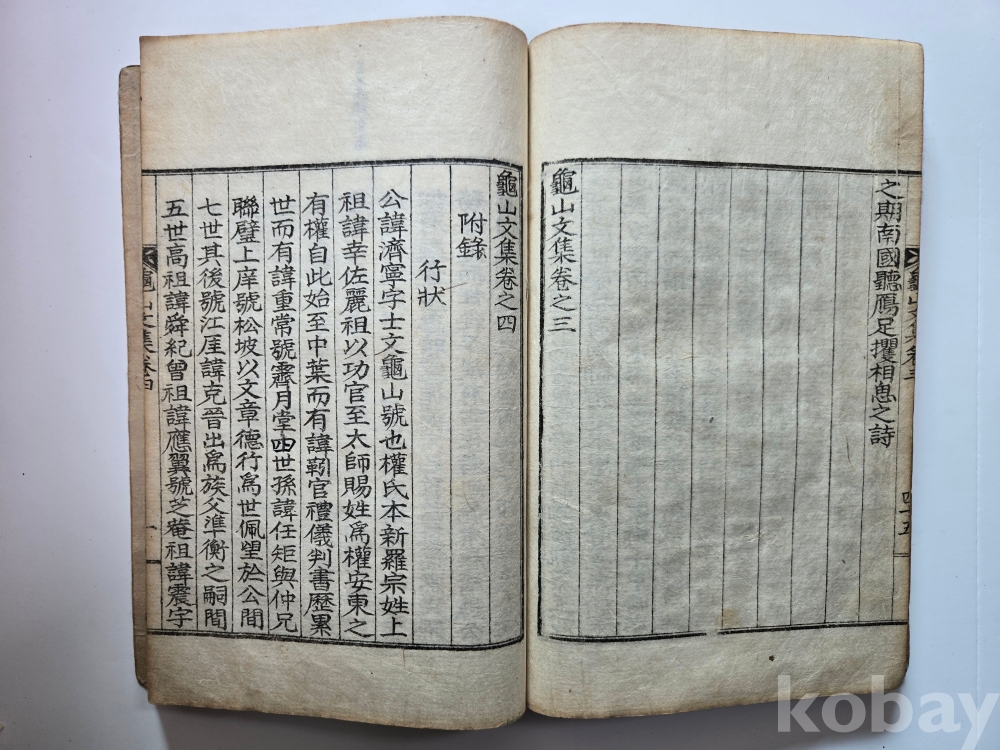 之期南國聽鴈足攫相思之詩
龜山文集卷之三
龜山文集卷三
四十五
龜山文集卷之四
附錄
行狀
公諱濟寧字士文龜山號也權氏本新羅宗姓上
祖諱幸佐麗祖以功官至太師賜姓爲權安東之
有權自此始至中葉而有諱靷官禮儀判書歷累
世而有諱重常號霽月堂四世孫諱任矩與仲兄
聯璧上庠號松坡以文章德行爲世佩望於公間
七世其後號江厓諱克晉出爲族父準衡之嗣間
五世高祖諱舜紀曾祖諱應翼號芝菴祖諱震字
龜山文集卷四
一
kobay